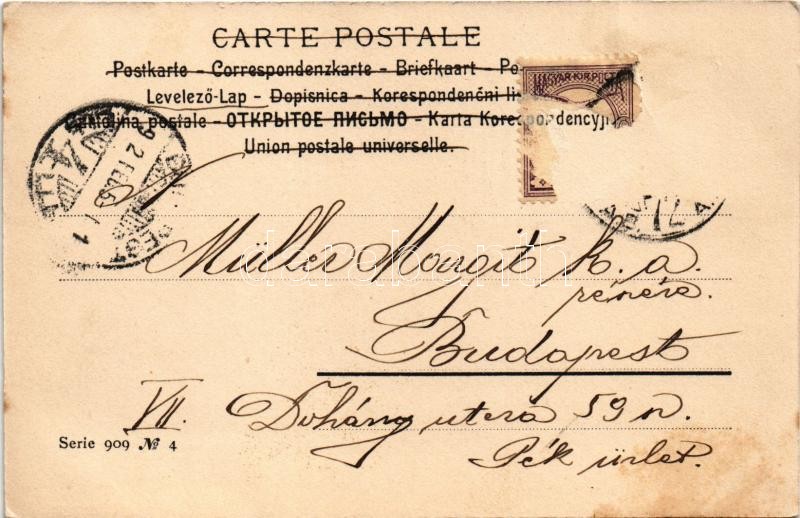 CARTE POSTALE
Postkarte – Correspondenzkarte – Briefkaart – Po
Levelező-Lap – Dopisnica – Korespondenční li
Cartolina postale – ОТКРЫТОЕ ПИСЬМО – Karta Korespondencyj
Union postale universelle.
MAGYAR·KIR·POSTA
Müller Margit k. a.
részére.
Budapest
VII. Dohány utcza 59 n.
Pék üzlet.
Serie 909 № 4
darabanth